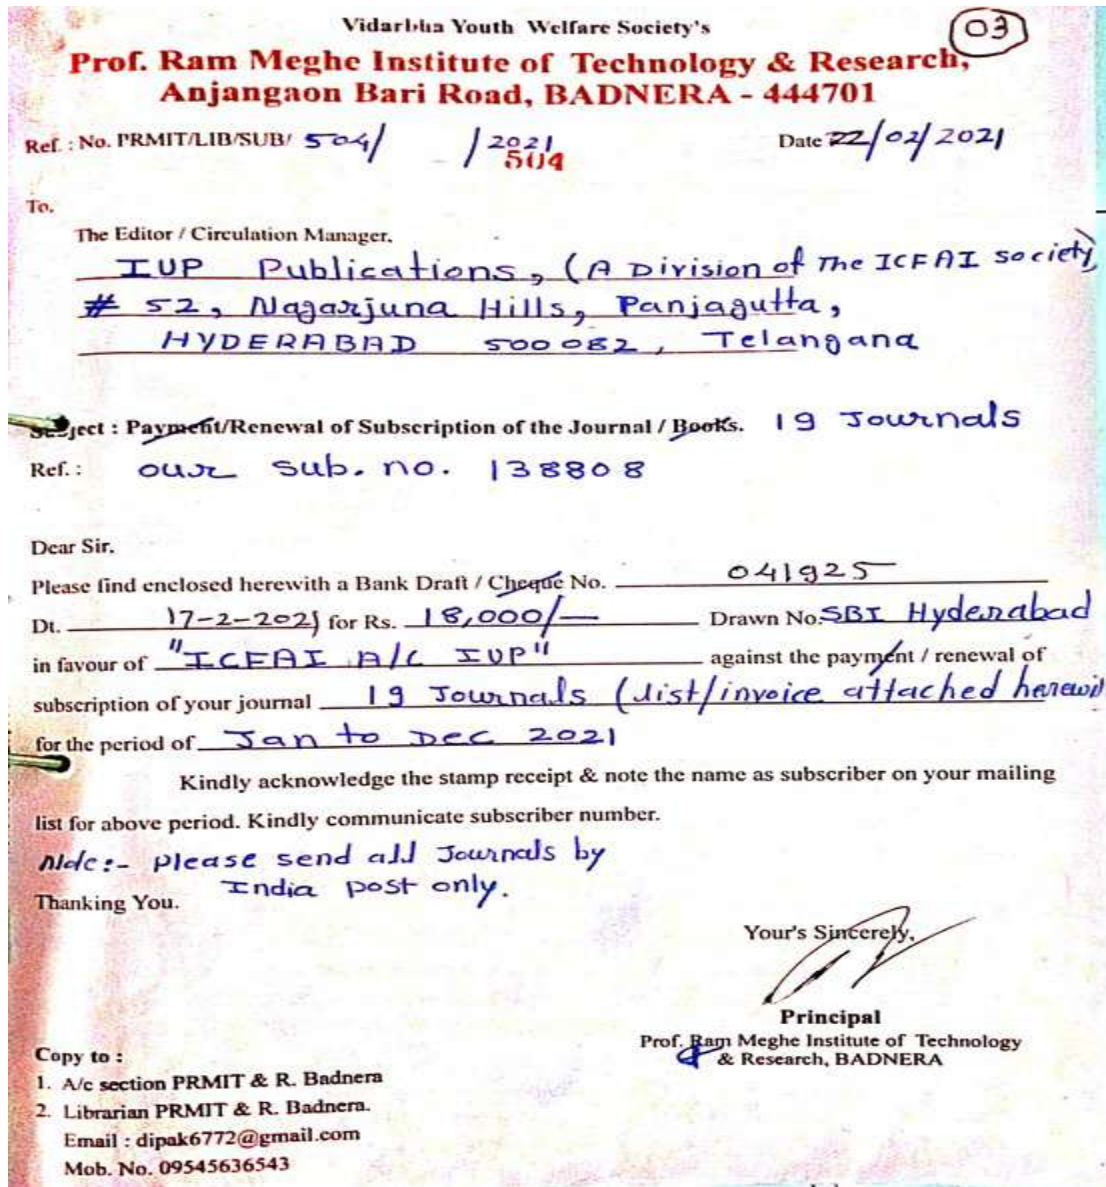 Vidarbha Youth Welfare Society's
03
Prof. Ram Meghe Institute of Technology & Research,
Anjangaon Bari Road, BADNERA - 444701
Ref. : No. PRMIT/LIB/SUB/ 504/ /2021
504
Date 22/02/2021
To.
The Editor / Circulation Manager.
IUP Publications, (A Division of The ICFAI society)
# 52, Nagarjuna Hills, Panjagutta,
HYDERABAD 500082, Telangana
Subject : Payment/Renewal of Subscription of the Journal / Books. 19 Journals
Ref. : our sub. no. 138808
Dear Sir.
Please find enclosed herewith a Bank Draft / Cheque No. 041925
Dt. 17-2-2021 for Rs. 18,000/- Drawn No. SBI Hyderabad
in favour of "ICFAI A/C IUP" against the payment / renewal of
subscription of your journal 19 Journals (list/invoice attached herewi
for the period of Jan to Dec 2021
Kindly acknowledge the stamp receipt & note the name as subscriber on your mailing
list for above period. Kindly communicate subscriber number.
Note:- please send all Journals by
India post only.
Thanking You.
Your's Sincerely,
Principal
Prof. Ram Meghe Institute of Technology
& Research, BADNERA
Copy to :
1. A/c section PRMIT & R. Badnera
2. Librarian PRMIT & R. Badnera.
Email : dipak6772@gmail.com
Mob. No. 09545636543